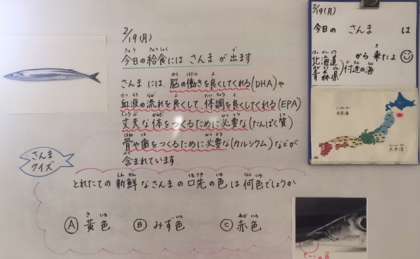 2/19(月)
今日の給食にはさんまが出ます
さんまには脳の働きを良くしてくれる(DHA)や
血液の流れを良くして体調を良くしてくれる(EPA)
丈夫な体をつくるために必要な(たんぱく質)
骨や歯をつくるために必要な(カルシウム)などが
含まれています
さんま
クイズ
とれたての新鮮なさんまの口先の色は何色でしょうか
Ⓐ 黄色 Ⓑ みず色 Ⓒ 赤色
2/19(月)
今日の さんま は
北海道
青森県
付近の海
から来たよ